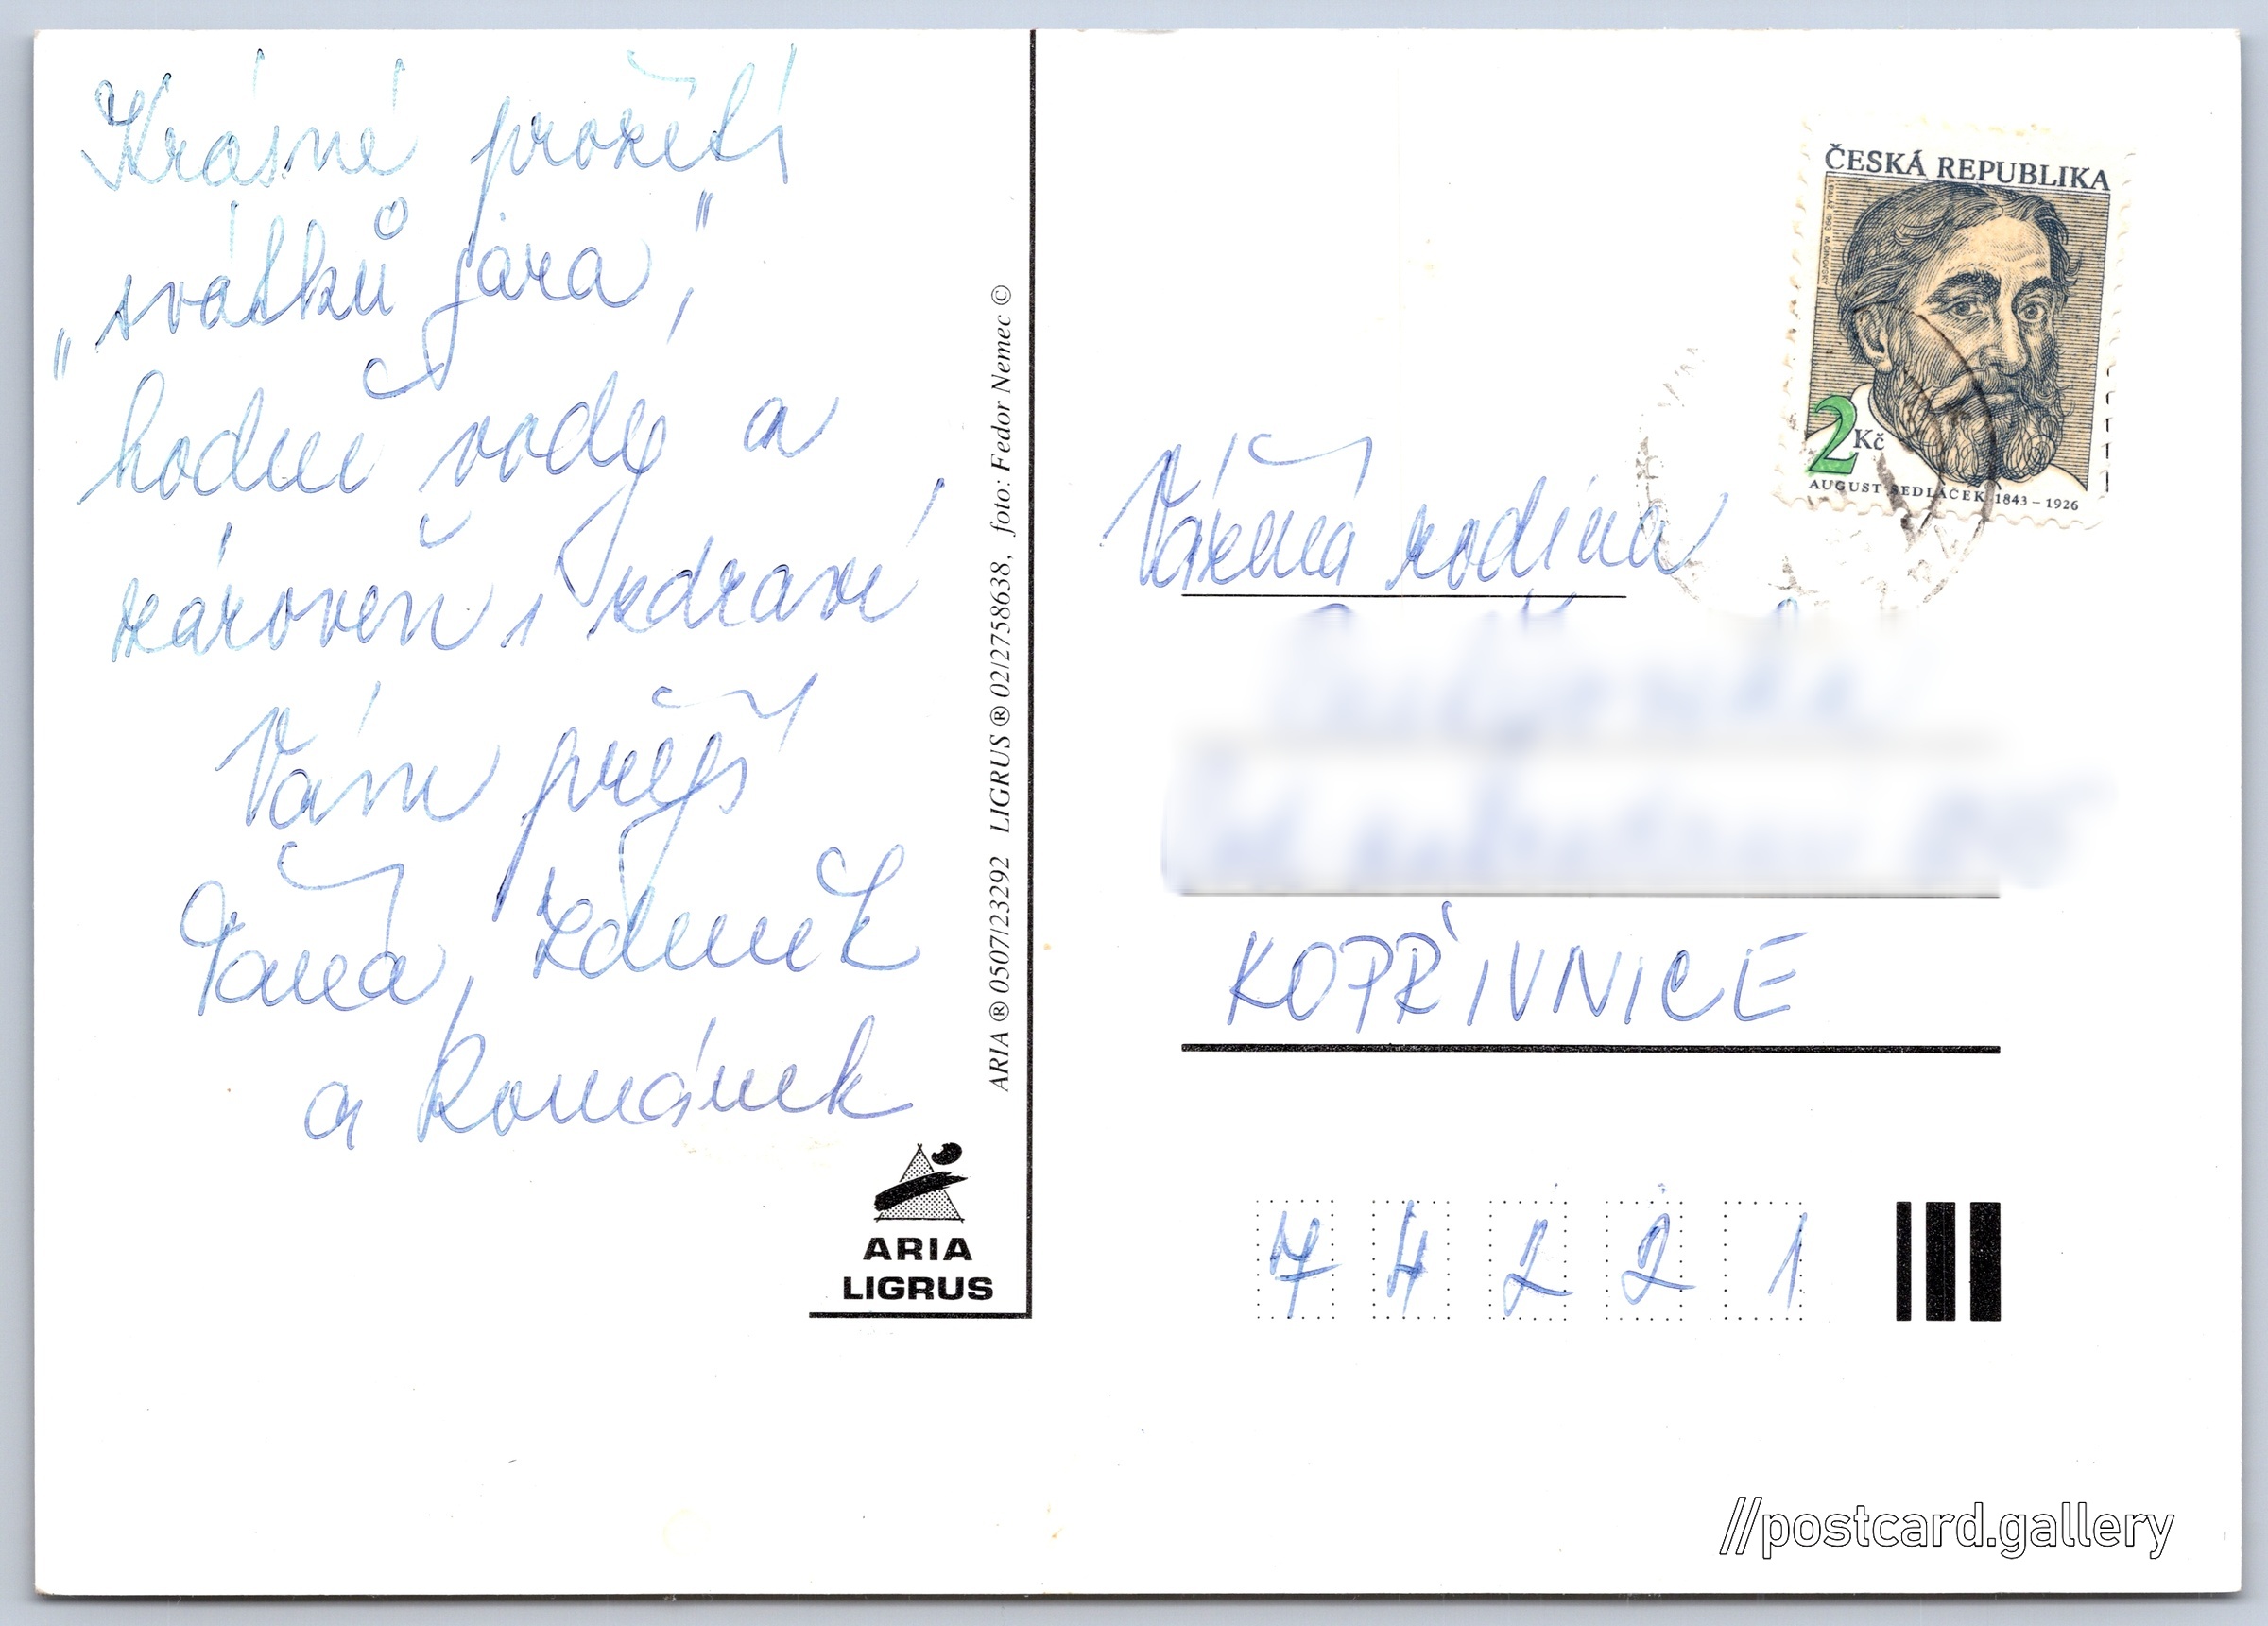 Krásné prožití
„svátků jara",
hodně vody a
zároveň i zdraví
Vám přejí
Táňa, Zdeněk
a Románek
ARIA ® 0507/23292 LIGRUS ® 02/2758638, foto: Fedor Nemec ©
ARIA
LIGRUS
ČESKÁ REPUBLIKA
2 Kč
AUGUST SEDLÁČEK 1843 – 1926
Vážená rodina
KOPŘIVNICE
74221
//postcard.gallery